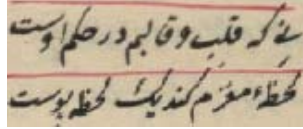 نے کہ قلب و قالبم در حکم اوست
لحظهٔ مغزم کند یک لحظه پوست